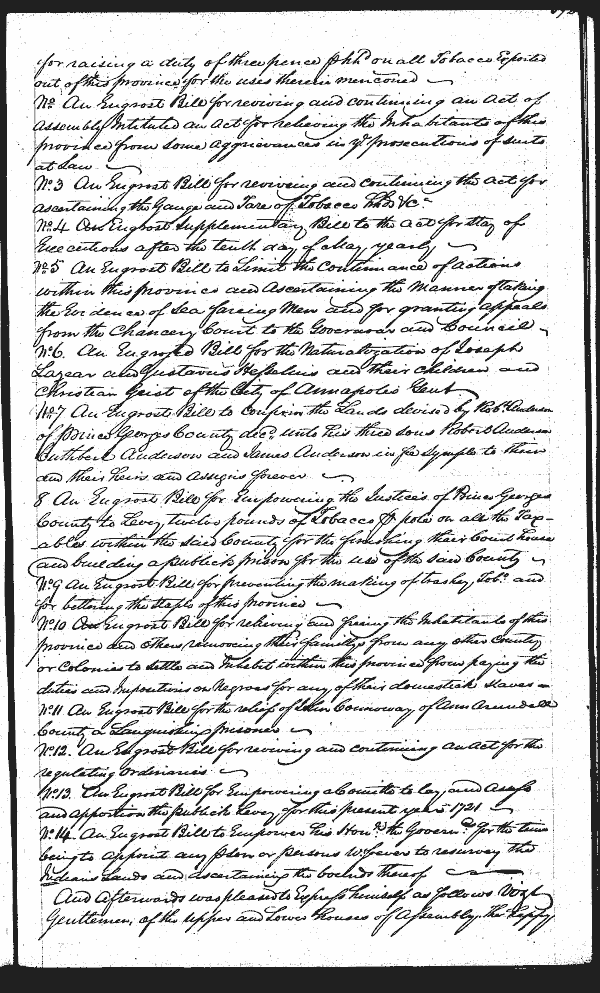 for raising a duty of three pence p hhd on all Tobacco Exported
out of this province for the uses therein menconed
No. An Engrost Bill for reviving and continuing an Act of
Assembly Intituled an Act for releiving the Inhabitants of this
province from some aggrievances in ye prosecutions of suits
at Law
No. 3 An Engrost Bill for reviving and continuing the Act for
ascertaining the Gauge and Tare of Tobacco hhds &c
No. 4 An Engrost Supplementary Bill to the Act for Stay of
Executions after the tenth day of May yearly
No. 5 An Engrost Bill to Limit the Continuance of actions
within this province and Ascertaining the Manner of taking
the Evidence of Sea fareing Men and for granting Appeals
from the Chancery Court to the Governour and Council
No. 6. An Engrossed Bill for the Naturalization of Joseph
Lazear and Gustavus Hesselius and their children and
Christian Geist of the City of Annapolis Gent
No. 7 An Engrost Bill to confirm the Lands devised by Robt Anderson
of Prince Georges County decd. unto his three sons Robert Anderson
Cuthbert Anderson and James Anderson in fee symple to them
and their heirs and assigns forever
8 An Engrost Bill for Empowering the Justices of Prince Georges
County to Levey twelve pounds of Tobacco p pole on all the Tax-
ables within the said County for the finishing their Court house
and building a publick prison for the use of the said County
No. 9 An Engrost Bill for preventing the making of trashy Tobo. and
for bettering the staple of this province
No. 10 An Engrost Bill for relieving and freeing the Inhabitants of this
province and others removeing their familys from any other County
or Colonies to settle and Inhabit within this province from paying the
duties and Impositions on Negroes for any of their domestick slaves
No. 11. An Engrost Bill for the relief of John Connoway of Ann Arundell
County a Languishing prisoner
No. 12. An Engrost Bill for reviving and continuing an Act for the
regulating Ordinaries
No. 13. An Engrost Bill for Empowering a Comittee to lay, and Assess
and apportion the publick Levey, for this present year 1721
No. 14. An Engrost Bill to Empower his Honr. the Governr. for the time
being to appoint any pson or persons w'soever to resurvey the
Indians Lands and ascertaining the bounds thereof
And Afterwards was pleased to Express himself as follows Vizt
Gentlemen, of the upper and Lower Houses of Assembly. The happy